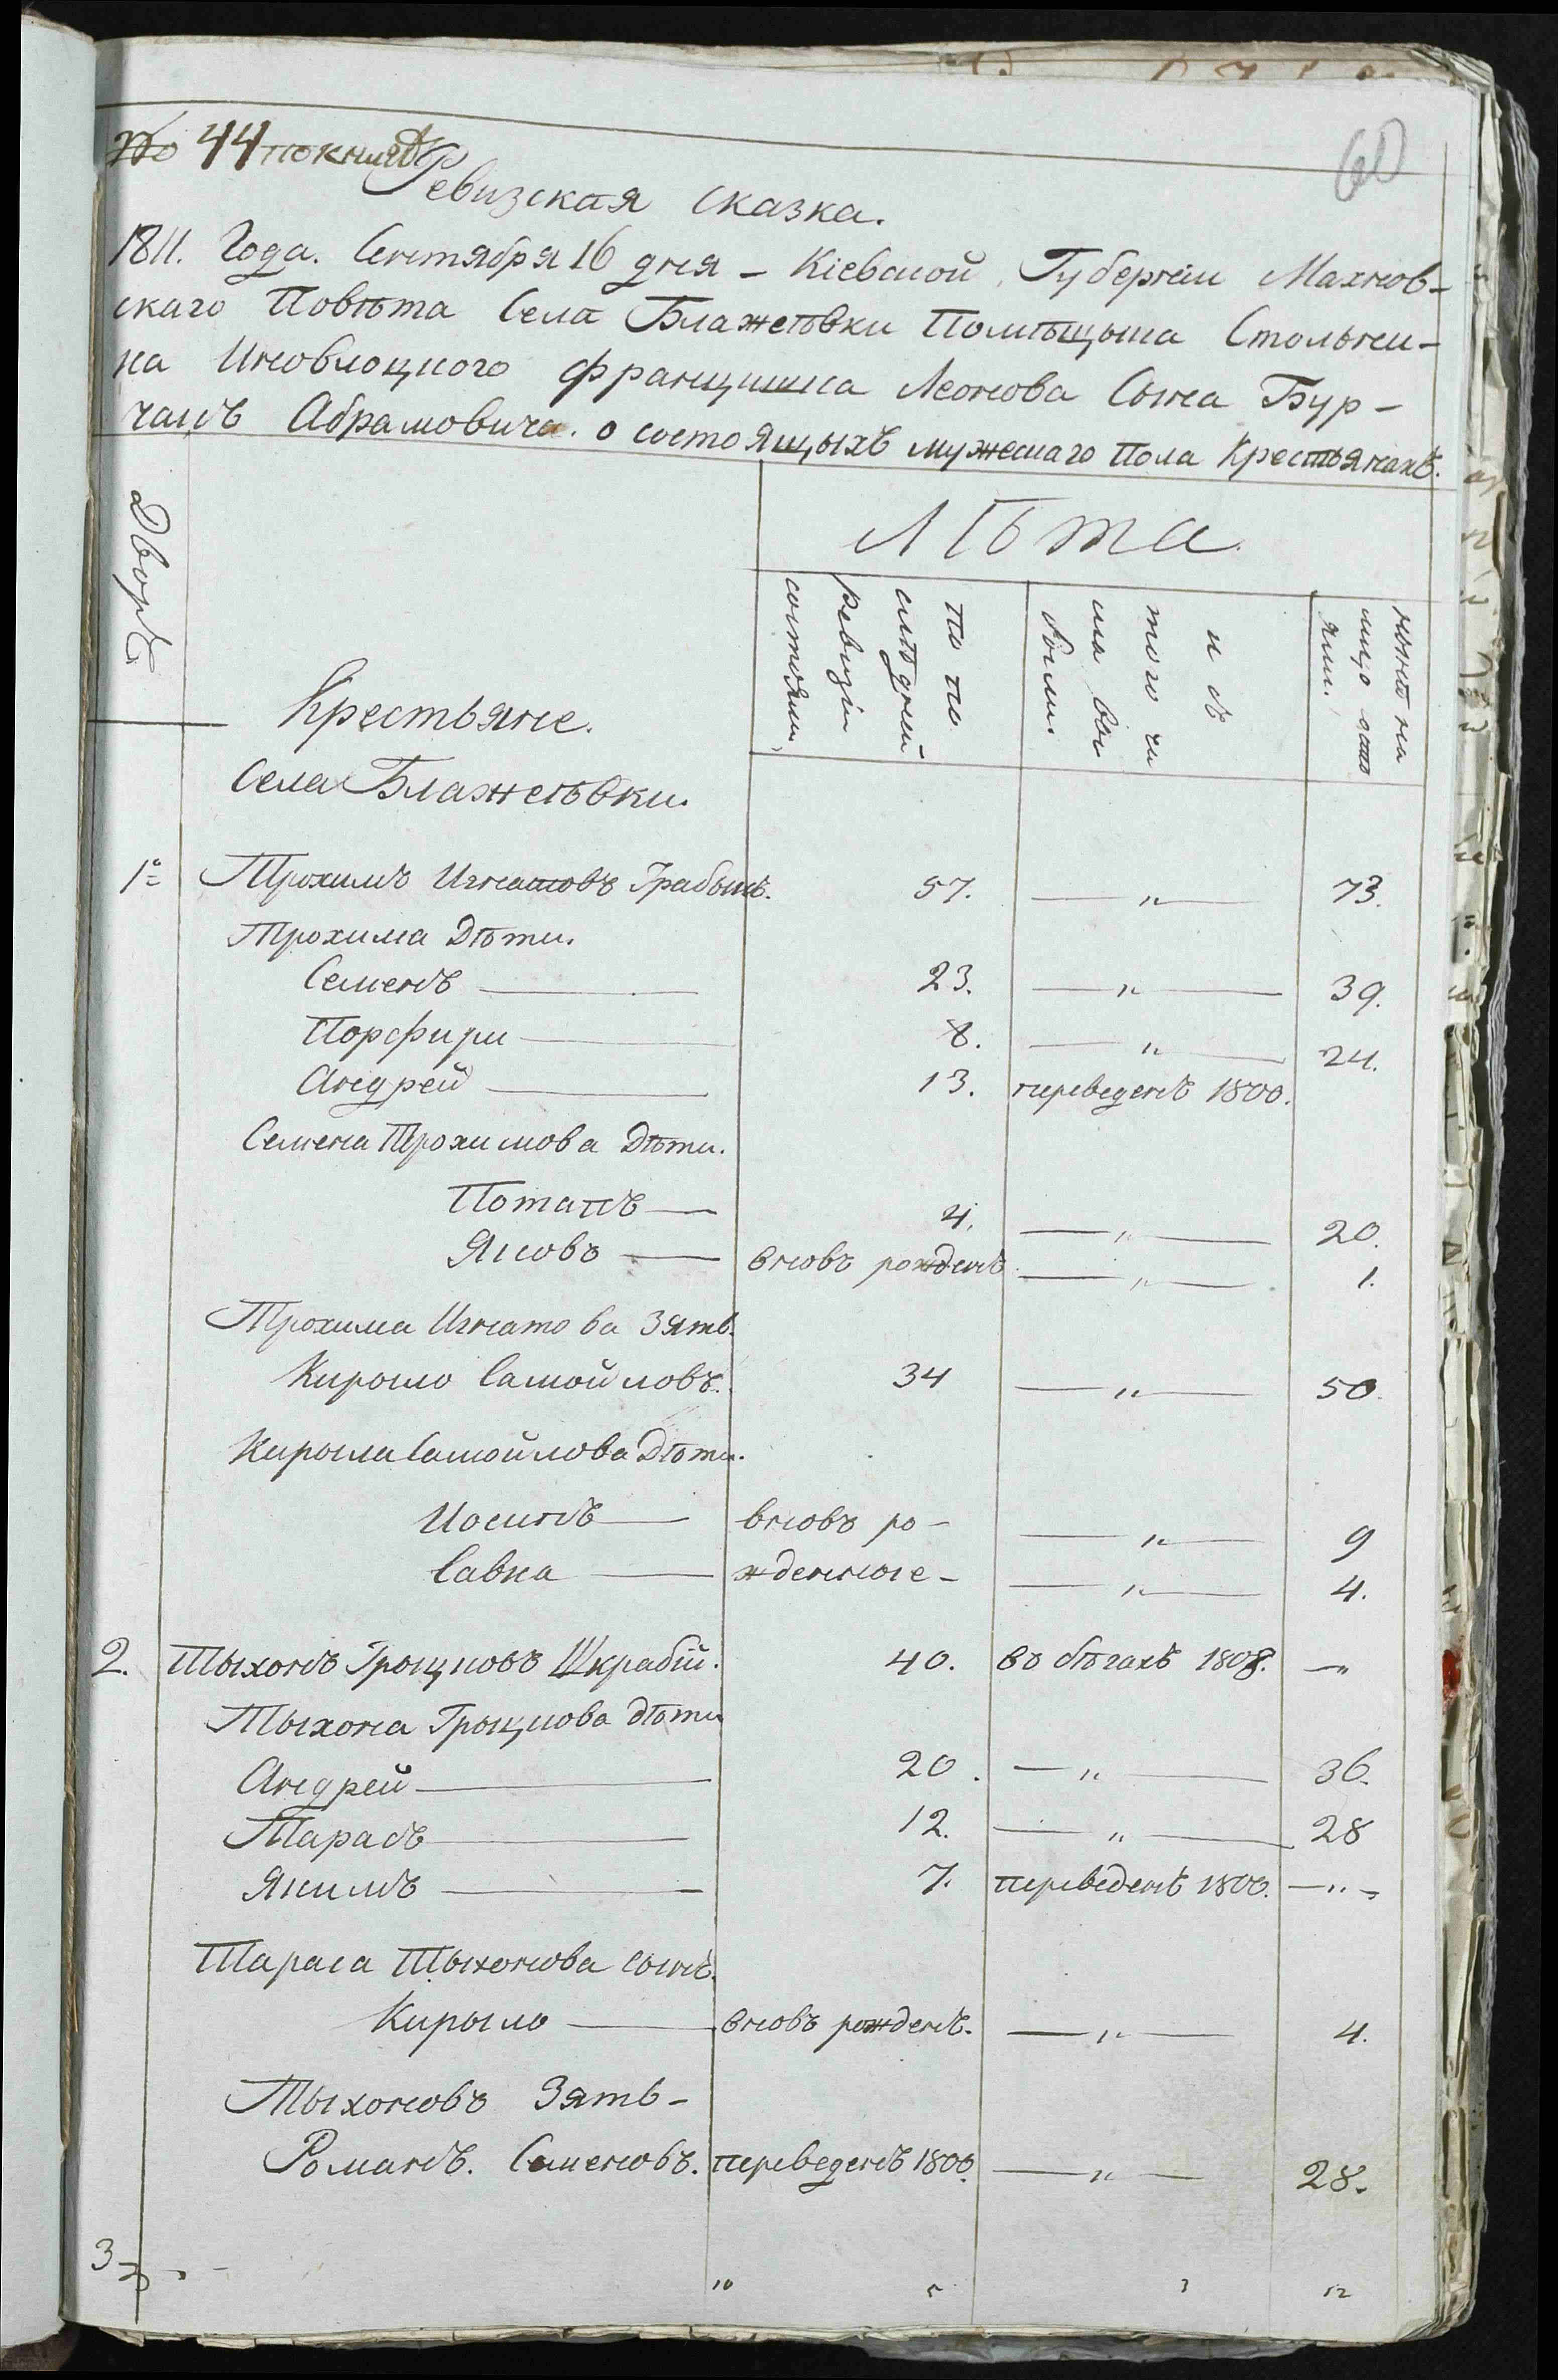 № 44 по книгѣ
60
Ревизская сказка.
1811. Года. Сентября 16 дня – Кіевской Губерніи Махнов-
скаго Повѣта Села Блажеѣвки Помѣщыка Стольни-
ка Иновлоцкого Францишка Леонова Сына Бур-
чакъ Абрамовича. о состоящыхъ мужескаго Пола Крестьянахъ.
Дворъ
Лѣта
по по
слѣдней
ревизіи
состояли,
изъ
того чи
сла вы
были.
нынѣ на
лицо состо
яли.
Крестьяне.
Села Блажеѣвки.
1 Трохимъ Игнатовъ Грабыкъ. 57. — „ — 73.
Трохима Дѣти.
Семенъ — 23. — „ — 39.
Порфири — 8. — „ — 24.
Андрей — 13. переведенъ 1800.
Семена Трохимова Дѣти.
Потапъ — 4. — „ — 20.
Яковъ — вновъ рожденъ — „ — 1.
Трохима Игнатова Зять.
Кирыло Самойловъ. 34 — „ — 50.
Кирыла Самойлова Дѣти.
Иосипъ — вновъ ро- — „ — 9
Савка — жденные – — „ — 4.
2. Тыхонъ Грыцковъ Шкрабій. 40. въ бѣгахъ 1808. — „
Тыхона Грыцкова дѣти
Андрей — 20. — „ — 36.
Тарасъ — 12. — „ — 28
Якимъ — 7. переведенъ 1800. — „ –
Тараса Тыхонова сынъ.
Кирыло — вновъ рожденъ. — „ — 4.
Тыхоновъ Зять –
Романъ. Семеновъ. переведенъ 1800. — „ — 28.
3
10 5 3 12